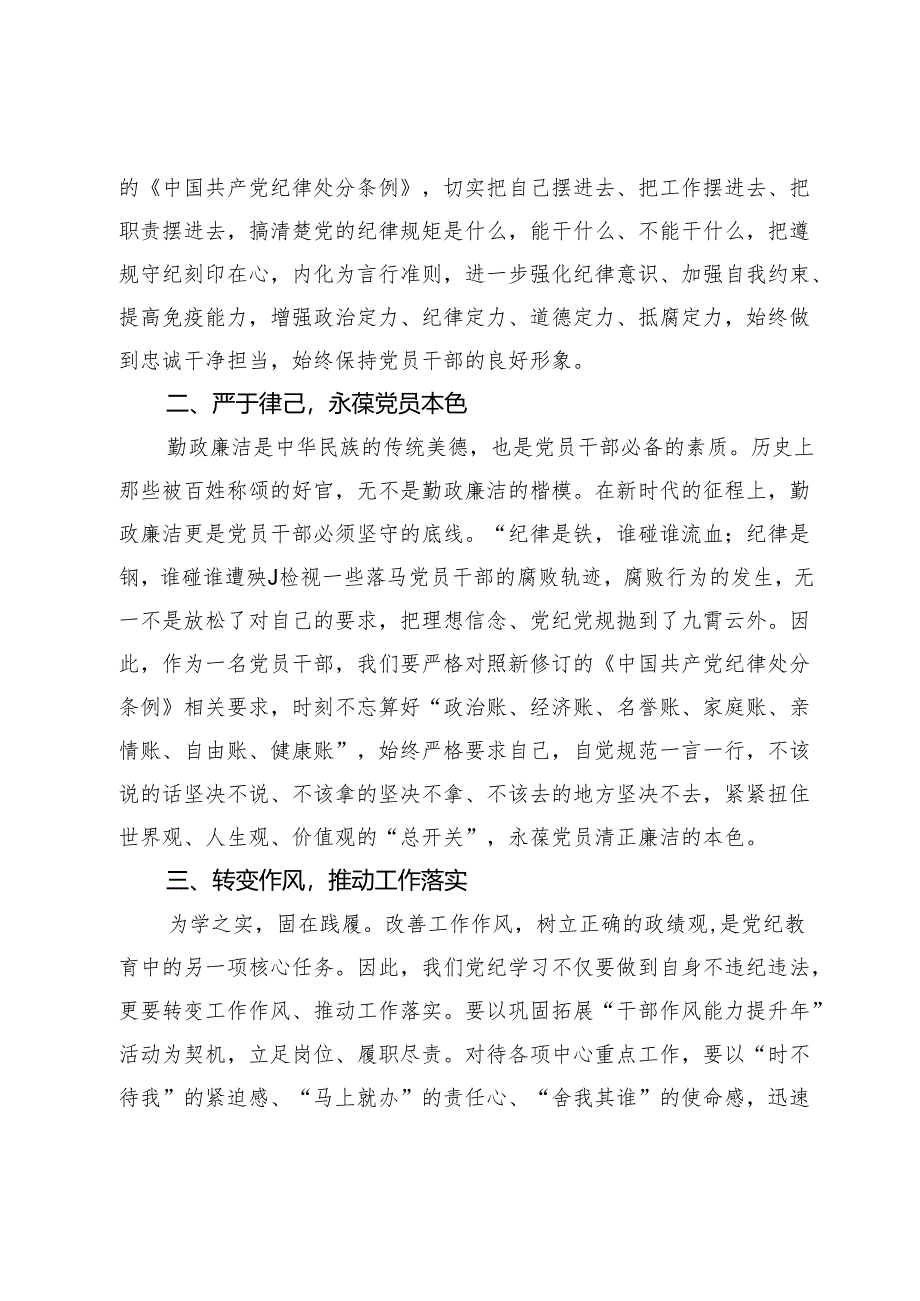 的《中国共产党纪律处分条例》，切实把自己摆进去、把工作摆进去、把
职责摆进去，搞清楚党的纪律规矩是什么，能干什么、不能干什么，把遵
规守纪刻印在心，内化为言行准则，进一步强化纪律意识、加强自我约束、
提高免疫能力，增强政治定力、纪律定力、道德定力、抵腐定力，始终做
到忠诚干净担当，始终保持党员干部的良好形象。
二、严于律己，永葆党员本色
勤政廉洁是中华民族的传统美德，也是党员干部必备的素质。历史上
那些被百姓称颂的好官，无不是勤政廉洁的楷模。在新时代的征程上，勤
政廉洁更是党员干部必须坚守的底线。“纪律是铁，谁碰谁流血；纪律是
钢，谁碰谁遭殃J检视一些落马党员干部的腐败轨迹，腐败行为的发生，无
一不是放松了对自己的要求，把理想信念、党纪党规抛到了九霄云外。因
此，作为一名党员干部，我们要严格对照新修订的《中国共产党纪律处分
条例》相关要求，时刻不忘算好“政治账、经济账、名誉账、家庭账、亲
情账、自由账、健康账”，始终严格要求自己，自觉规范一言一行，不该
说的话坚决不说、不该拿的坚决不拿、不该去的地方坚决不去，紧紧扭住
世界观、人生观、价值观的“总开关”，永葆党员清正廉洁的本色。
三、转变作风，推动工作落实
为学之实，固在践履。改善工作作风，树立正确的政绩观,是党纪教
育中的另一项核心任务。因此，我们党纪学习不仅要做到自身不违纪违法，
更要转变工作作风、推动工作落实。要以巩固拓展“干部作风能力提升年”
活动为契机，立足岗位、履职尽责。对待各项中心重点工作，要以“时不
待我”的紧迫感、“马上就办”的责任心、“舍我其谁”的使命感，迅速